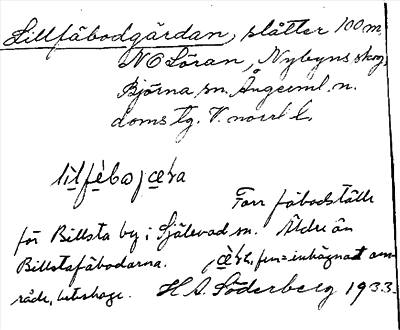 Lillfäbodgärdan, slåtter 100 m.
NO Löran, Nybyns skog,
Björna sn. Ångerml. n.
doms tg. V. norrl l.
Forr fäbodställe
för Billsta by i Själevad sn. Äldre än
Billstafäbodarna. inhägnat om-
råde, beteshage. H A. Söderberg 1933.